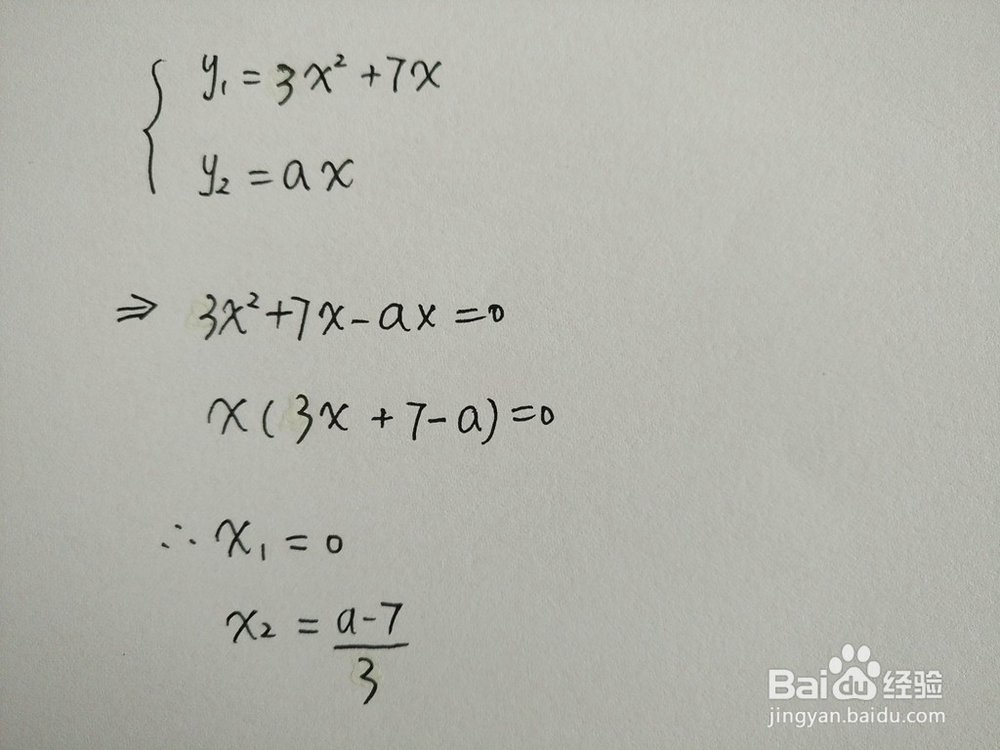 y₁ = 3x² + 7x
y₂ = ax
⇒ 3x² + 7x - ax = 0
x(3x + 7 - a) = 0
∴ x₁ = 0
x₂ = (a-7)/3
Baidu 经验
jingyan.baidu.com